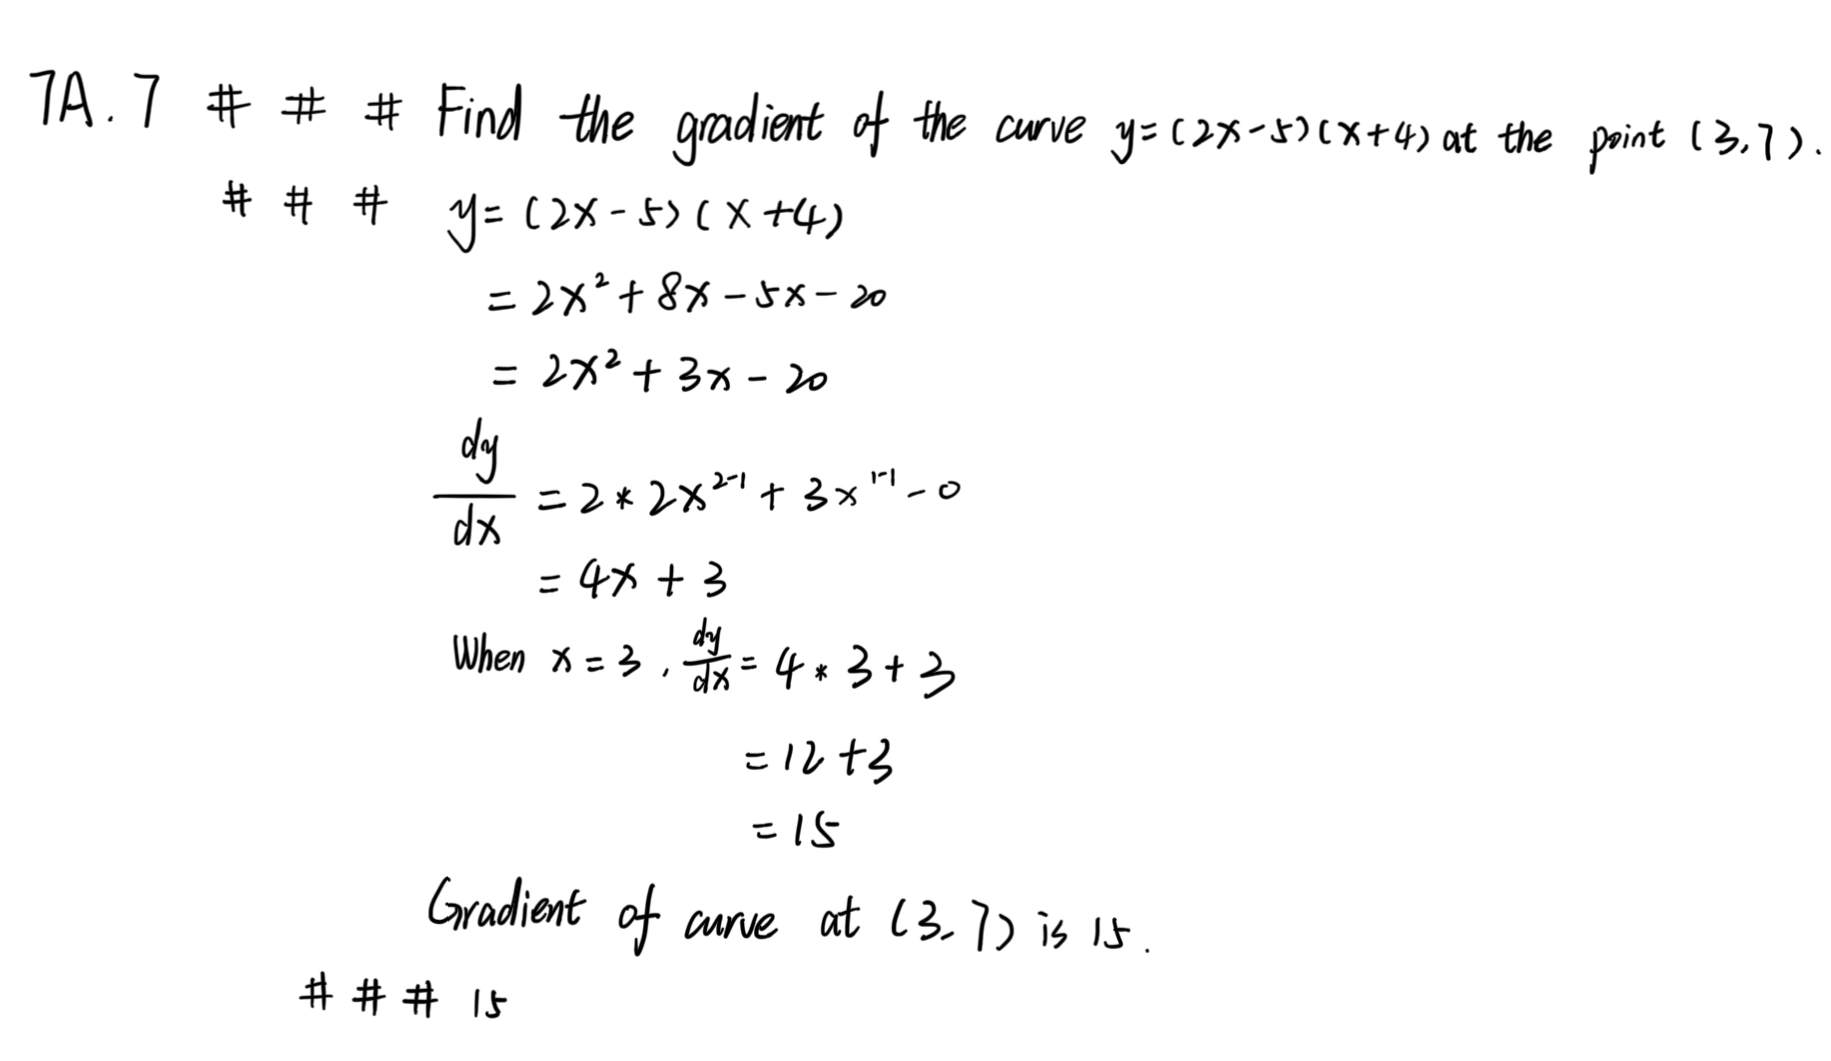 7A.7 # # # Find the gradient of the curve y=(2x-5)(x+4) at the point (3,7).
# # # y=(2x-5)(x+4)
=2x²+8x-5x-20
=2x²+3x-20
dy/dx =2*2x^{2-1}+3x^{1-1}-0
=4x+3
When x=3, dy/dx=4*3+3
=12+3
=15
Gradient of curve at (3,7) is 15.
# # # 15